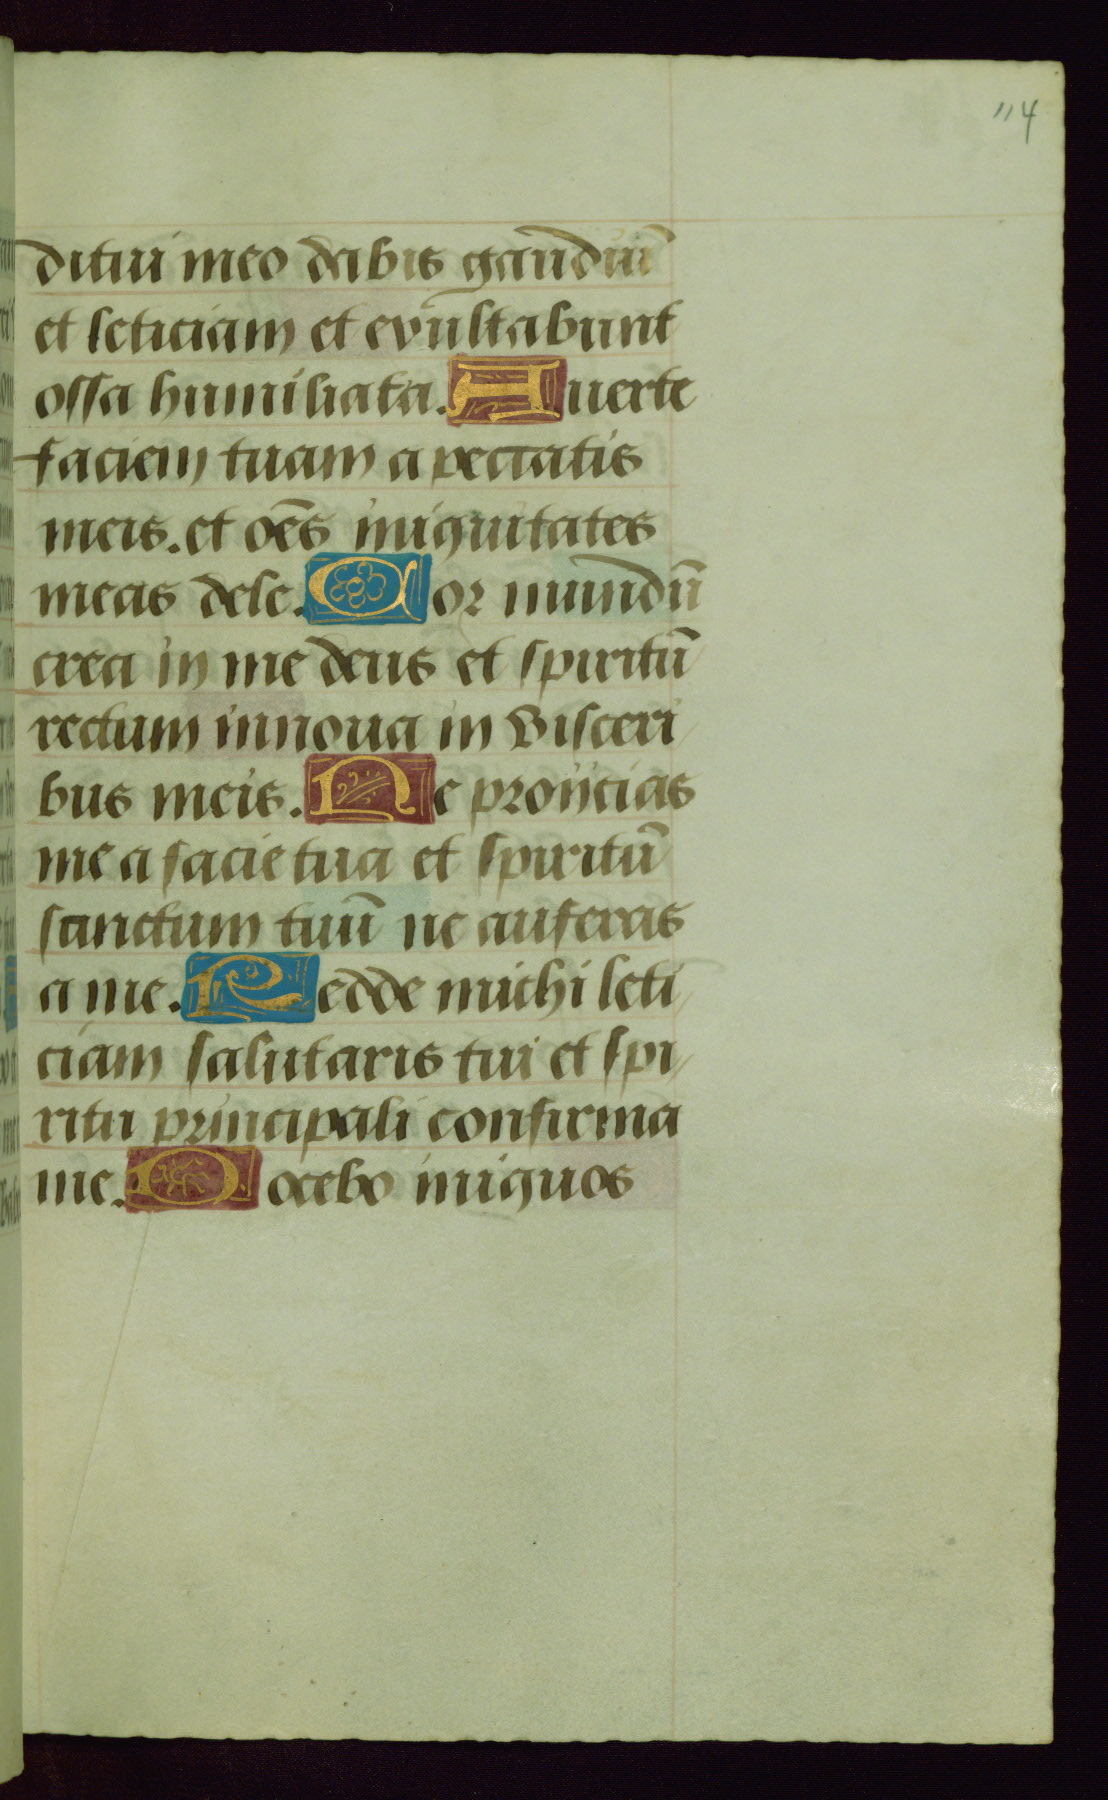 114
ditui meo dabis gaudiū
et leticiam et exultabunt
ossa humiliata. Auerte
faciem tuam a peccatis
meis. et oēs iniquitates
meas dele. Cor mundū
crea in me deus et spiritū
rectum innoua in visceri
bus meis. Ne proiicias
me a facie tua et spiritū
sanctum tuū ne auferas
a me. Redde michi leti
ciam salutaris tui et spi
ritu principali confirma
me. Docebo iniquos